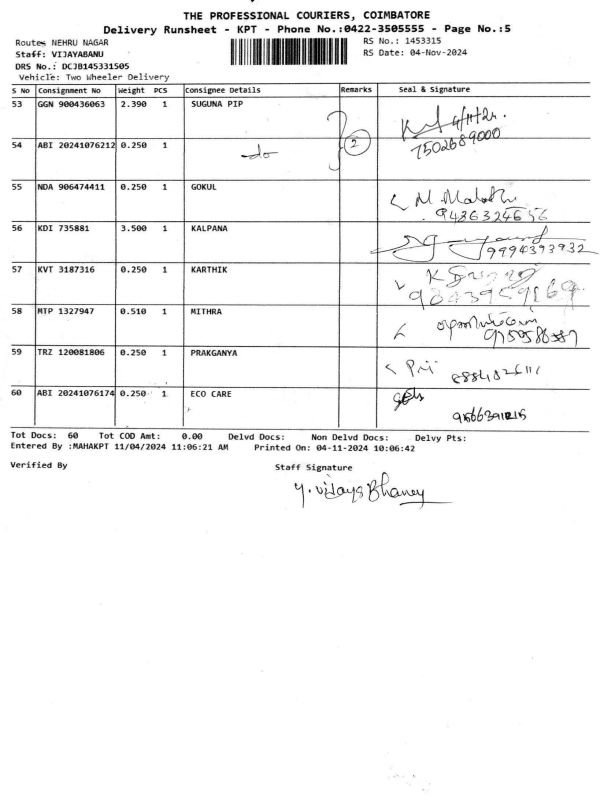 THE PROFESSIONAL COURIERS, COIMBATORE
Delivery Runsheet - KPT - Phone No.:0422-3505555 - Page No.:5
Route: NEHRU NAGAR RS No.: 1453315
Staff: VIJAYABANU RS Date: 04-Nov-2024
DRS No.: DCJB145331505
Vehicle: Two Wheeler Delivery
S No Consignment No Weight PCS Consignee Details Remarks Seal & Signature
53 GGN 900436063 2.390 1 SUGUNA PIP 4/11/24.
7502689000
54 ABI 20241076212 0.250 1 -do- 2
55 NDA 906474411 0.250 1 GOKUL
9486324656
56 KDI 735881 3.500 1 KALPANA
9994393932
57 KVT 3187316 0.250 1 KARTHIK
58 MTP 1327947 0.510 1 MITHRA
59 TRZ 120081806 0.250 1 PRAKGANYA
60 ABI 20241076174 0.250 1 ECO CARE
Tot Docs: 60 Tot COD Amt: 0.00 Delvd Docs: Non Delvd Docs: Delvy Pts:
Entered By :MAHAKPT 11/04/2024 11:06:21 AM Printed On: 04-11-2024 10:06:42
Verified By Staff Signature